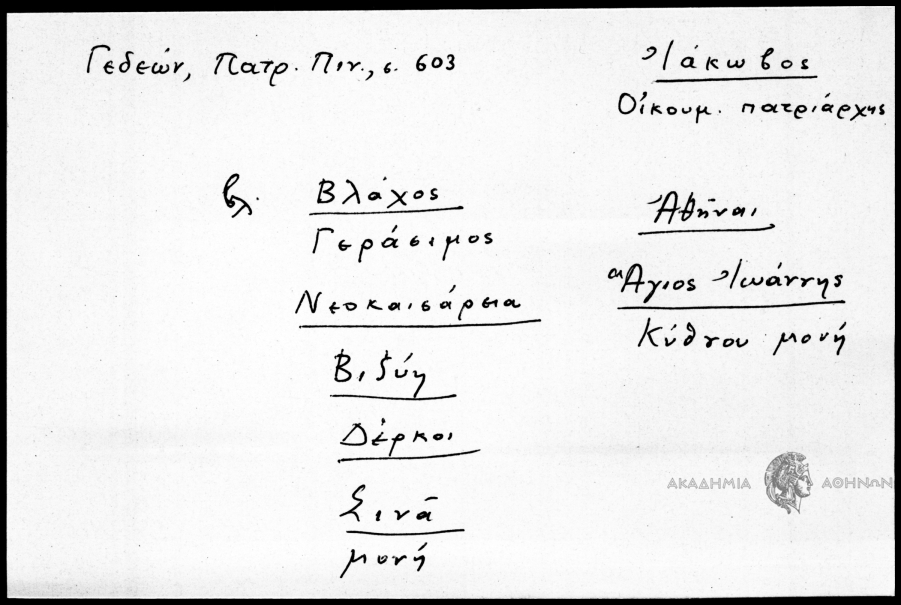 Γεδεών, Πατρ. Πιν., σ. 603
Ἰάκωβος
Οἰκουμ. πατριάρχης
βλ. Βλάχος
Γεράσιμος
Νεοκαισάρεια
Βιζύη
Δέρκοι
Σινᾶ
μονή
Ἀθῆναι
Ἅγιος Ἰωάννης
Κύθνου μονή
ΑΚΑΔΗΜΙΑ ΑΘΗΝΩΝ